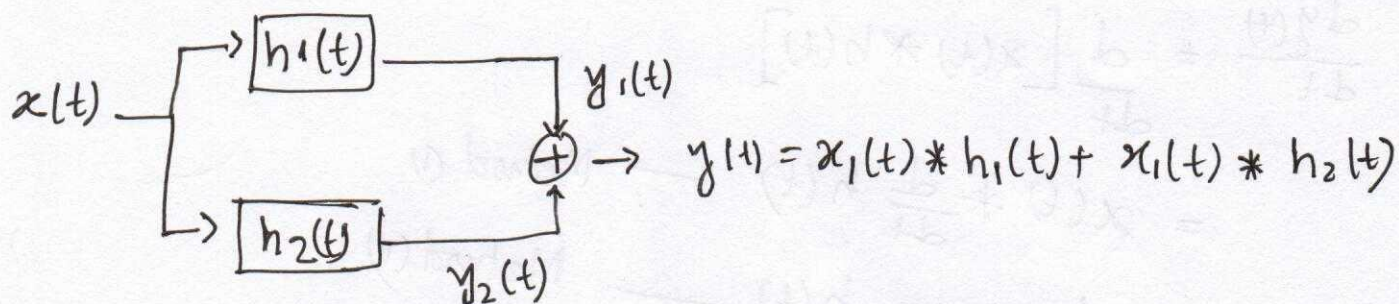 h1(t)
y₁(t)
x(t)
+ → y(t) = x₁(t) * h₁(t) + x₁(t) * h₂(t)
h₂(t)
y₂(t)